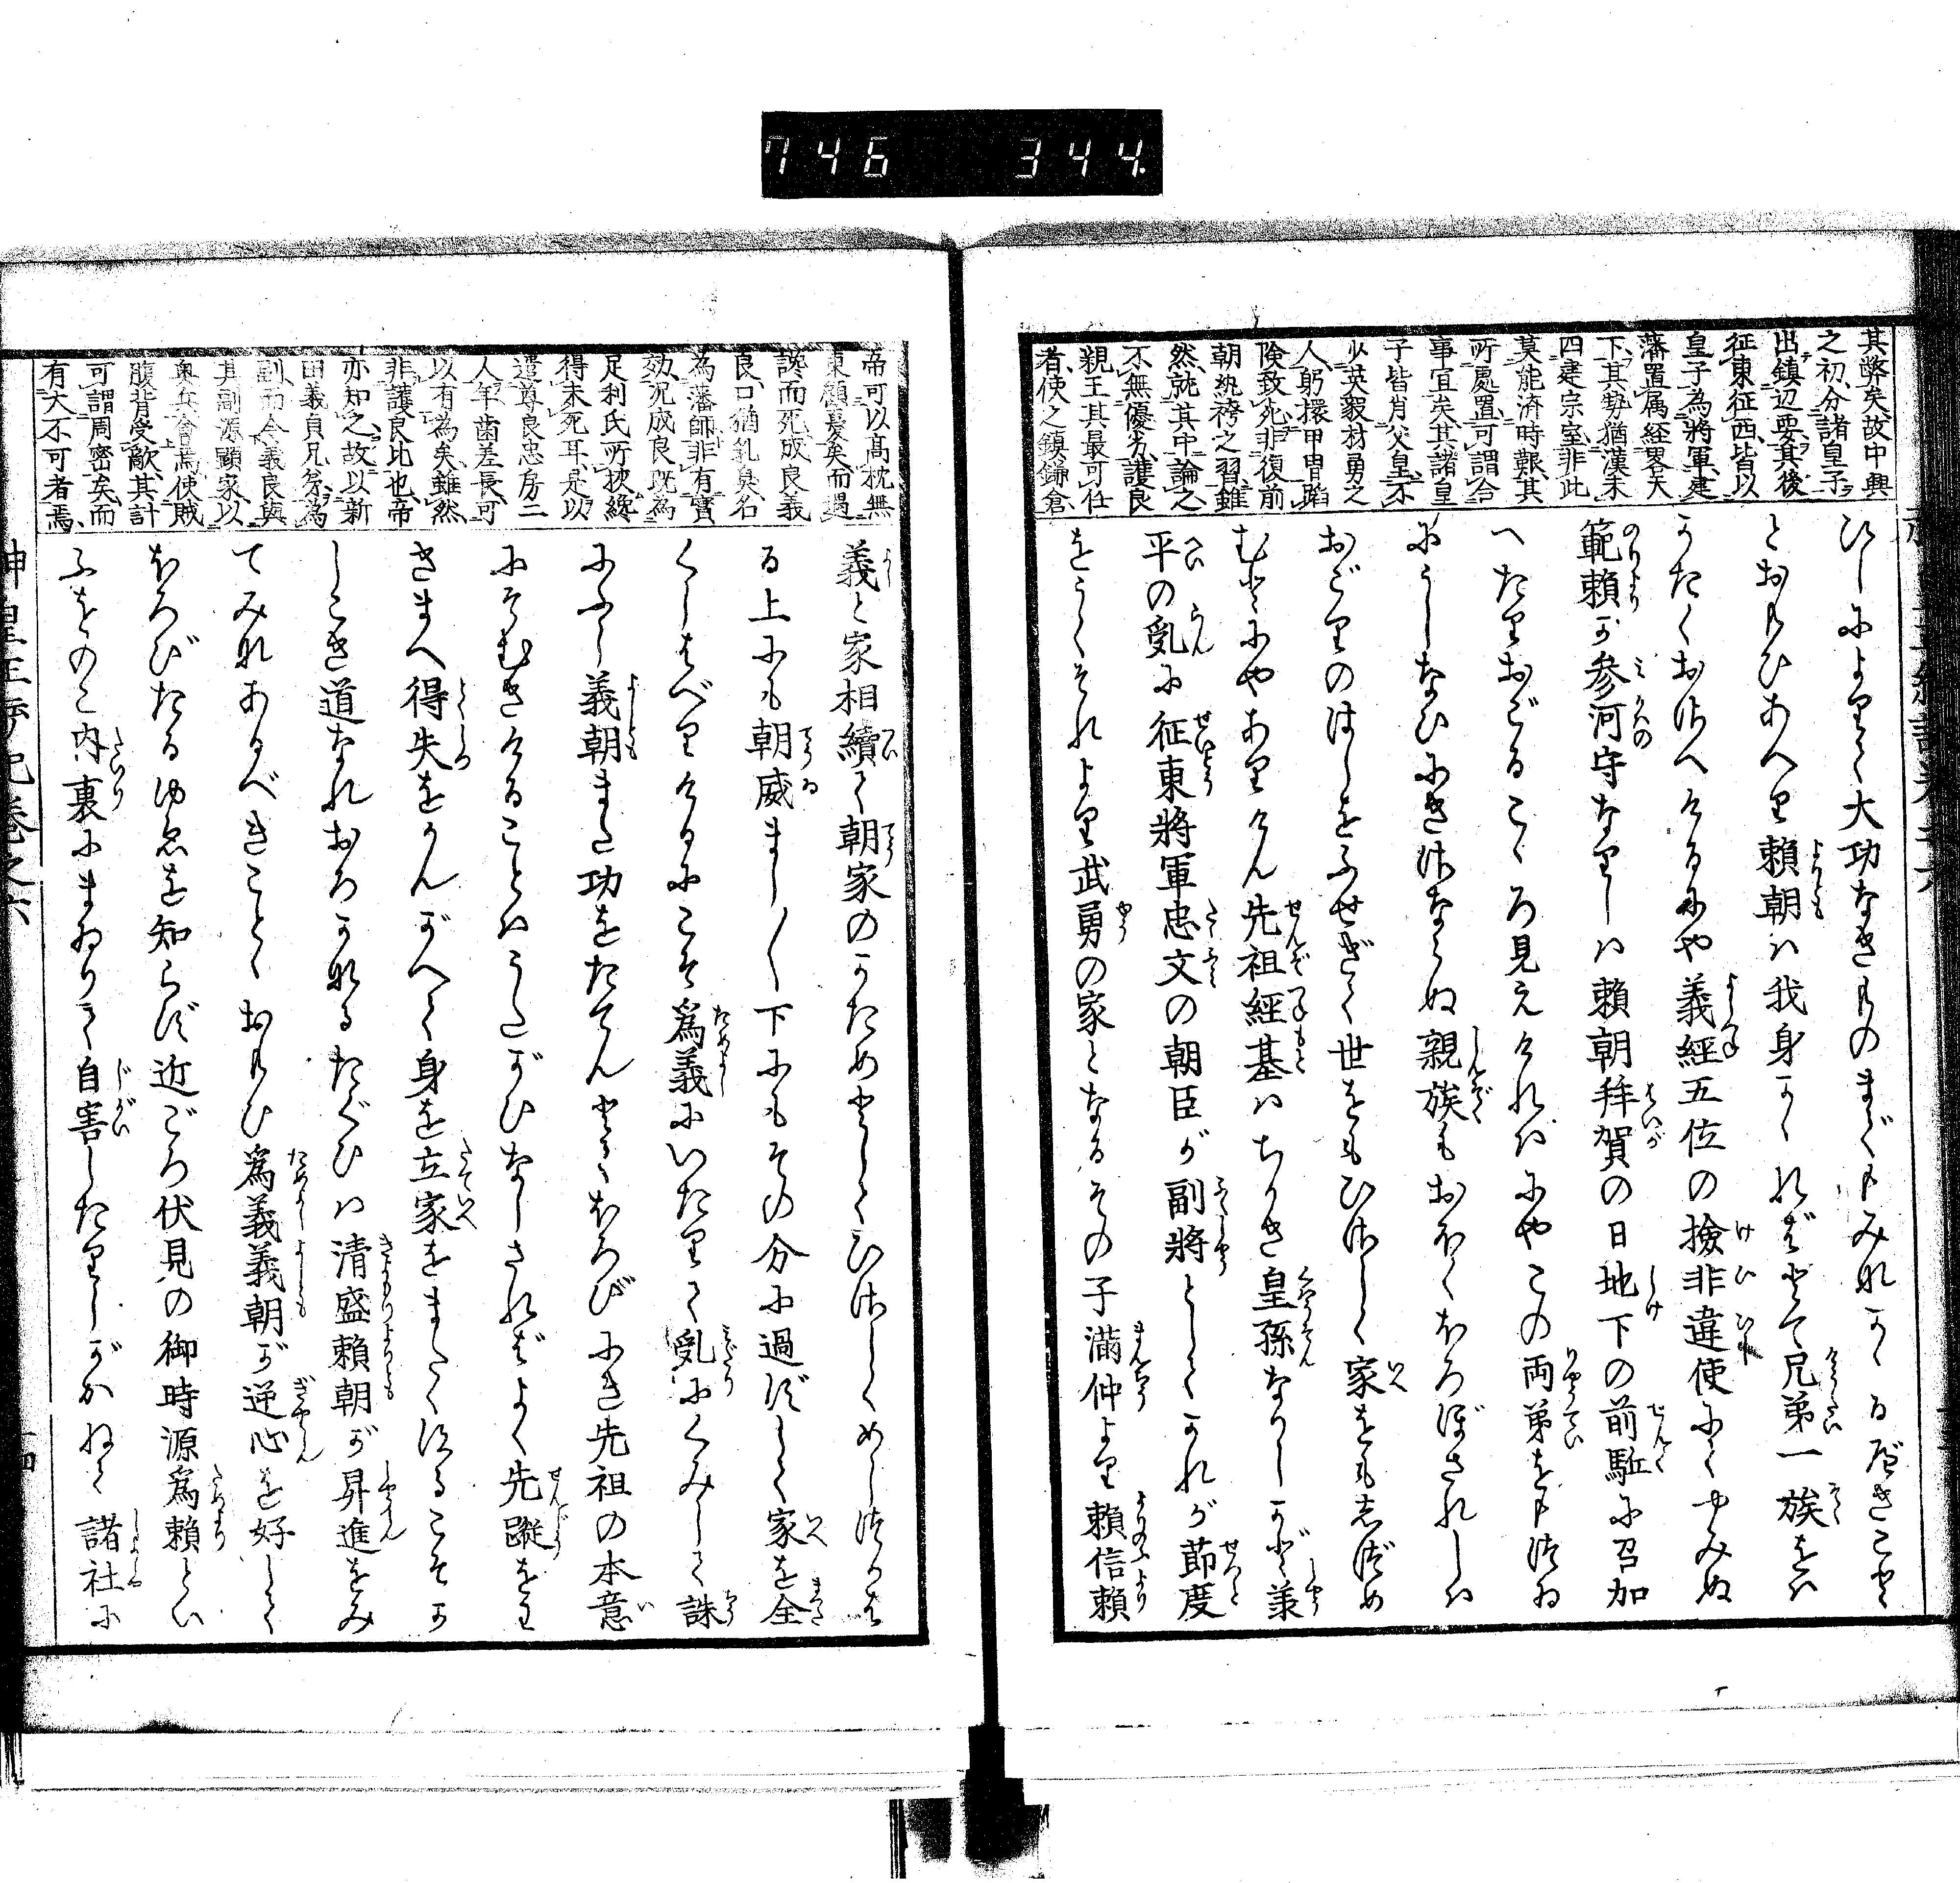 其弊矣故中興
之初分諸皇子
出鎮辺要其後
征東征西皆以
皇子為將軍建
藩置属経畧天
下其勢猶漢末
四建宗室非此
莫能済時艱其
所處置可謂合
事宜矣其諸皇
子皆肖父皇不
必英毅材勇之
人躬擐甲冑蹈
険致死非復前
朝紈袴之習雖
然就其中論之
不無優劣護良
親王其最可任
者使之鎮鎌倉
しによりて大功なきものまでもみなかゝるべきこと
とおもひあへり頼朝は我身かゝればとて兄弟一族をは
かたくおさへけるにや義經五位の撿非違使にてやみぬ
範頼が参河守なりしは頼朝拜賀の日地下の前駈に召加
へたりおごるこゝろ見えければにやこの両弟をもつゐ
にうしなひにきさならぬ親族もおほくほろぼされしは
おごりのはしをふせぎて世をもひさしく家をもしづめ
むとにやありけん先祖經基はちかき皇孫なりしかど承
平の乱に征東將軍忠文の朝臣が副將としてかれが節度
をうくそれより武勇の家となるその子滿仲より頼信頼
帝可以髙枕無
東顧憂矣而遇
讒而死成良義
良口猶乳臭名
為藩師非有實
効况成良既為
足利氏所挾纔
得未死耳是以
遣尊良忠房二
人年歯差長可
以有為矣雖然
非護良比也帝
亦知之故以新
田義貞兄弟為
副而令義良與
其副源顕家以
奥兵會焉使賊
腹背受敵其計
可謂周密矣而
有大不可者焉
義と家相續て朝家のかためとしてひさしくめしつかは
る上にも朝威まし〱下にもその分に過ずして家を全
くしはべりけるにこそ爲義にいたりて乱にくみして誅
にふし義朝また功をたてんとてほろびにき先祖の本意
にそむきけることはうたがひなしさればよく先蹤をわ
きまへ得失をかんがへて身を立家をまたくするこそか
しこき道なれおろかなるたぐひは清盛頼朝が昇進をみ
てみなあるべきことゝおもひ爲義義朝が逆心を好して
ほろびたるゆゑを知らず近ごろ伏見の御時源爲頼とい
ふをのこ内裏にまゐりて自害したりしがかねて諸社に
神皇正統記巻之六
746 344